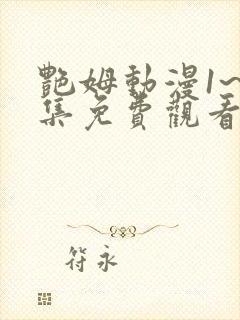 艷姆動漫1~
集免費觀看
符永